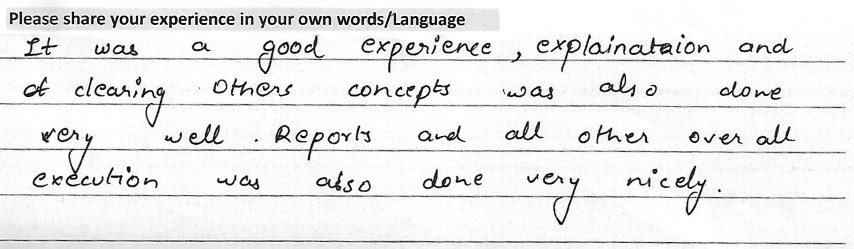 Please share your experience in your own words/Language
It was a good experience, explainataion and
of clearing others concepts was also done
very well. Reports and all other over all
execution was also done very nicely.